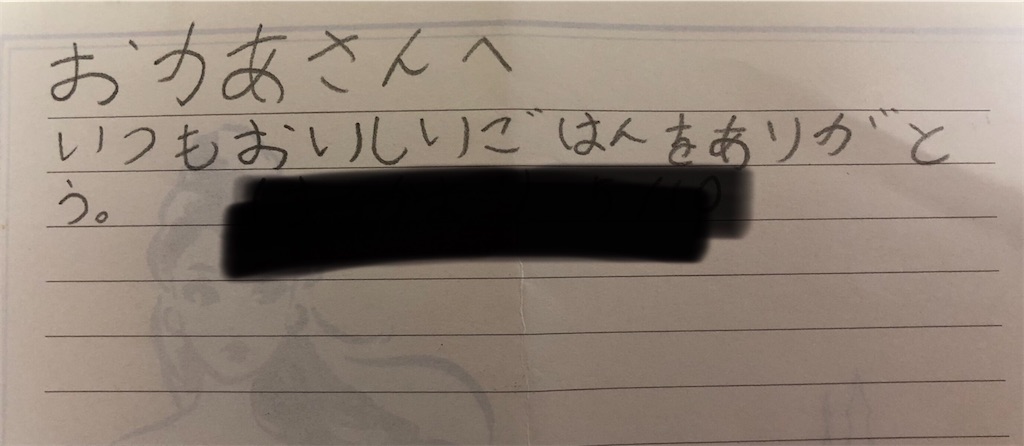 おかあさんへ
いつもおいしいごはんをありがと
う。